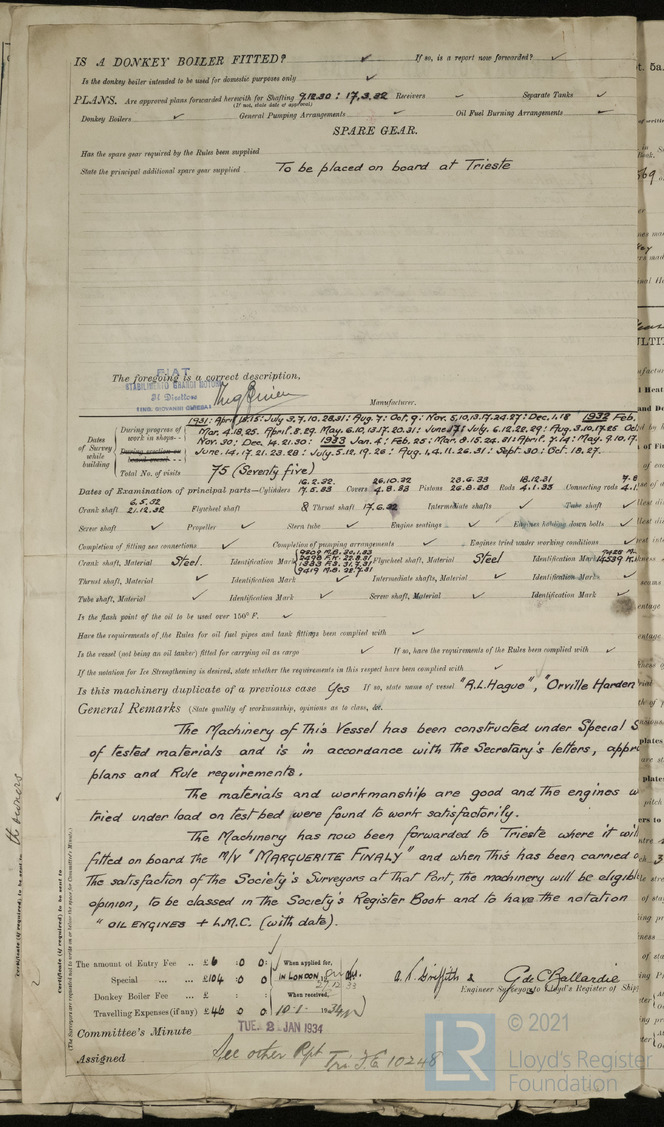 IS A DONKEY BOILER FITTED? ✓ If so, is a report now forwarded? ✓
Is the donkey boiler intended to be used for domestic purposes only ✓
PLANS. Are approved plans forwarded herewith for Shafting 9.12.30 : 17.3.32 Receivers ✓ Separate Tanks ✓
(If not, state date of approval)
Donkey Boilers ✓ General Pumping Arrangements ✓ Oil Fuel Burning Arrangements ✓
SPARE GEAR.
Has the spare gear required by the Rules been supplied
State the principal additional spare gear supplied To be placed on board at Trieste
The foregoing is a correct description,
FIAT
STABILIMENTO GRANDI MOTORI
Il Direttore
Manufacturer.
1931: April 15: July 3.7.10.28.31: Aug. 7: Oct. 9: Nov. 5,10,13.17.24.27: Dec. 1.18 1932 Feb.
Dates of Survey while building
During progress of work in shops--
Mar. 4.18.25. April. 8.29. May. 6.10.13.17.20.31: June 17: July. 6.12.22.29: Aug. 3.10.17.25
Nov. 30: Dec. 14.21.30: 1933 Jan. 4: Feb. 25: Mar. 8.15.24.31: April. 7.14: May. 9.10.17.
June. 14.17.21.23.28: July. 5.12.19.26: Aug. 1.4.11.26.31: Sept. 30: Oct. 18.27.
Total No. of visits 75 (Seventy five)
Dates of Examination of principal parts—Cylinders 16.2.32. 17.5.33 Covers 26.10.32 4.8.33 Pistons 23.6.33 26.8.33 Rods 18.12.31 4.1.33 Connecting rods
Crank shaft 6.5.32 21.12.32 Flywheel shaft & Thrust shaft 17.6.32 Intermediate shafts ✓ Tube shaft ✓
Screw shaft ✓ Propeller ✓ Stern tube ✓ Engine seatings ✓ Engines holding down bolts ✓
Completion of fitting sea connections ✓ Completion of pumping arrangements ✓ Engines tried under working conditions ✓
Crank shaft, Material Steel. Identification Mark Flywheel shaft, Material Steel Identification Mark
Thrust shaft, Material ✓ Identification Mark ✓ Intermediate shafts, Material ✓ Identification Marks ✓
Tube shaft, Material ✓ Identification Mark ✓ Screw shaft, Material ✓ Identification Mark ✓
Is the flash point of the oil to be used over 150° F. ✓
Have the requirements of the Rules for oil fuel pipes and tank fittings been complied with ✓
Is the vessel (not being an oil tanker) fitted for carrying oil as cargo ✓ If so, have the requirements of the Rules been complied with ✓
If the notation for Ice Strengthening is desired, state whether the requirements in this respect have been complied with ✓
Is this machinery duplicate of a previous case Yes If so, state name of vessel "R.L. Hague", "Orville Harden
General Remarks (State quality of workmanship, opinions as to class, &c.
The Machinery of this Vessel has been constructed under Special S
of tested materials and is in accordance with the Secretary's letters, appr
plans and Rule requirements.
The materials and workmanship are good and the engines w
tried under load on test bed were found to work satisfactorily.
The Machinery has now been forwarded to Trieste where it wil
fitted on board the M/V "MARGUERITE FINALY" and when this has been carried o
the satisfaction of the Society's Surveyors at that Port, the machinery will be eligibl
opinion, to be classed in the Society's Register Book and to have the notation
" OIL ENGINES + L.M.C. (with date).
The amount of Entry Fee .. £ 6 : 0 : 0 When applied for,
Special ... ... £ 104 : 0 : 0 IN LONDON
Donkey Boiler Fee ... £ : : When received,
Travelling Expenses (if any) £ 40 : 0 : 0 10-1- 1934
A. K. Griffith & G. de C. Ballardie
Engineer Surveyors to Lloyd's Register of Ship
Committee's Minute TUE. 2 JAN 1934
Assigned See other Rpt Tri F.E 10248
© 2021
LR
Lloyd's Register
Foundation
the owners
Certificate (if required) to be sent to
(The Surveyors are requested not to write on or below the space for Committee's Minute.)